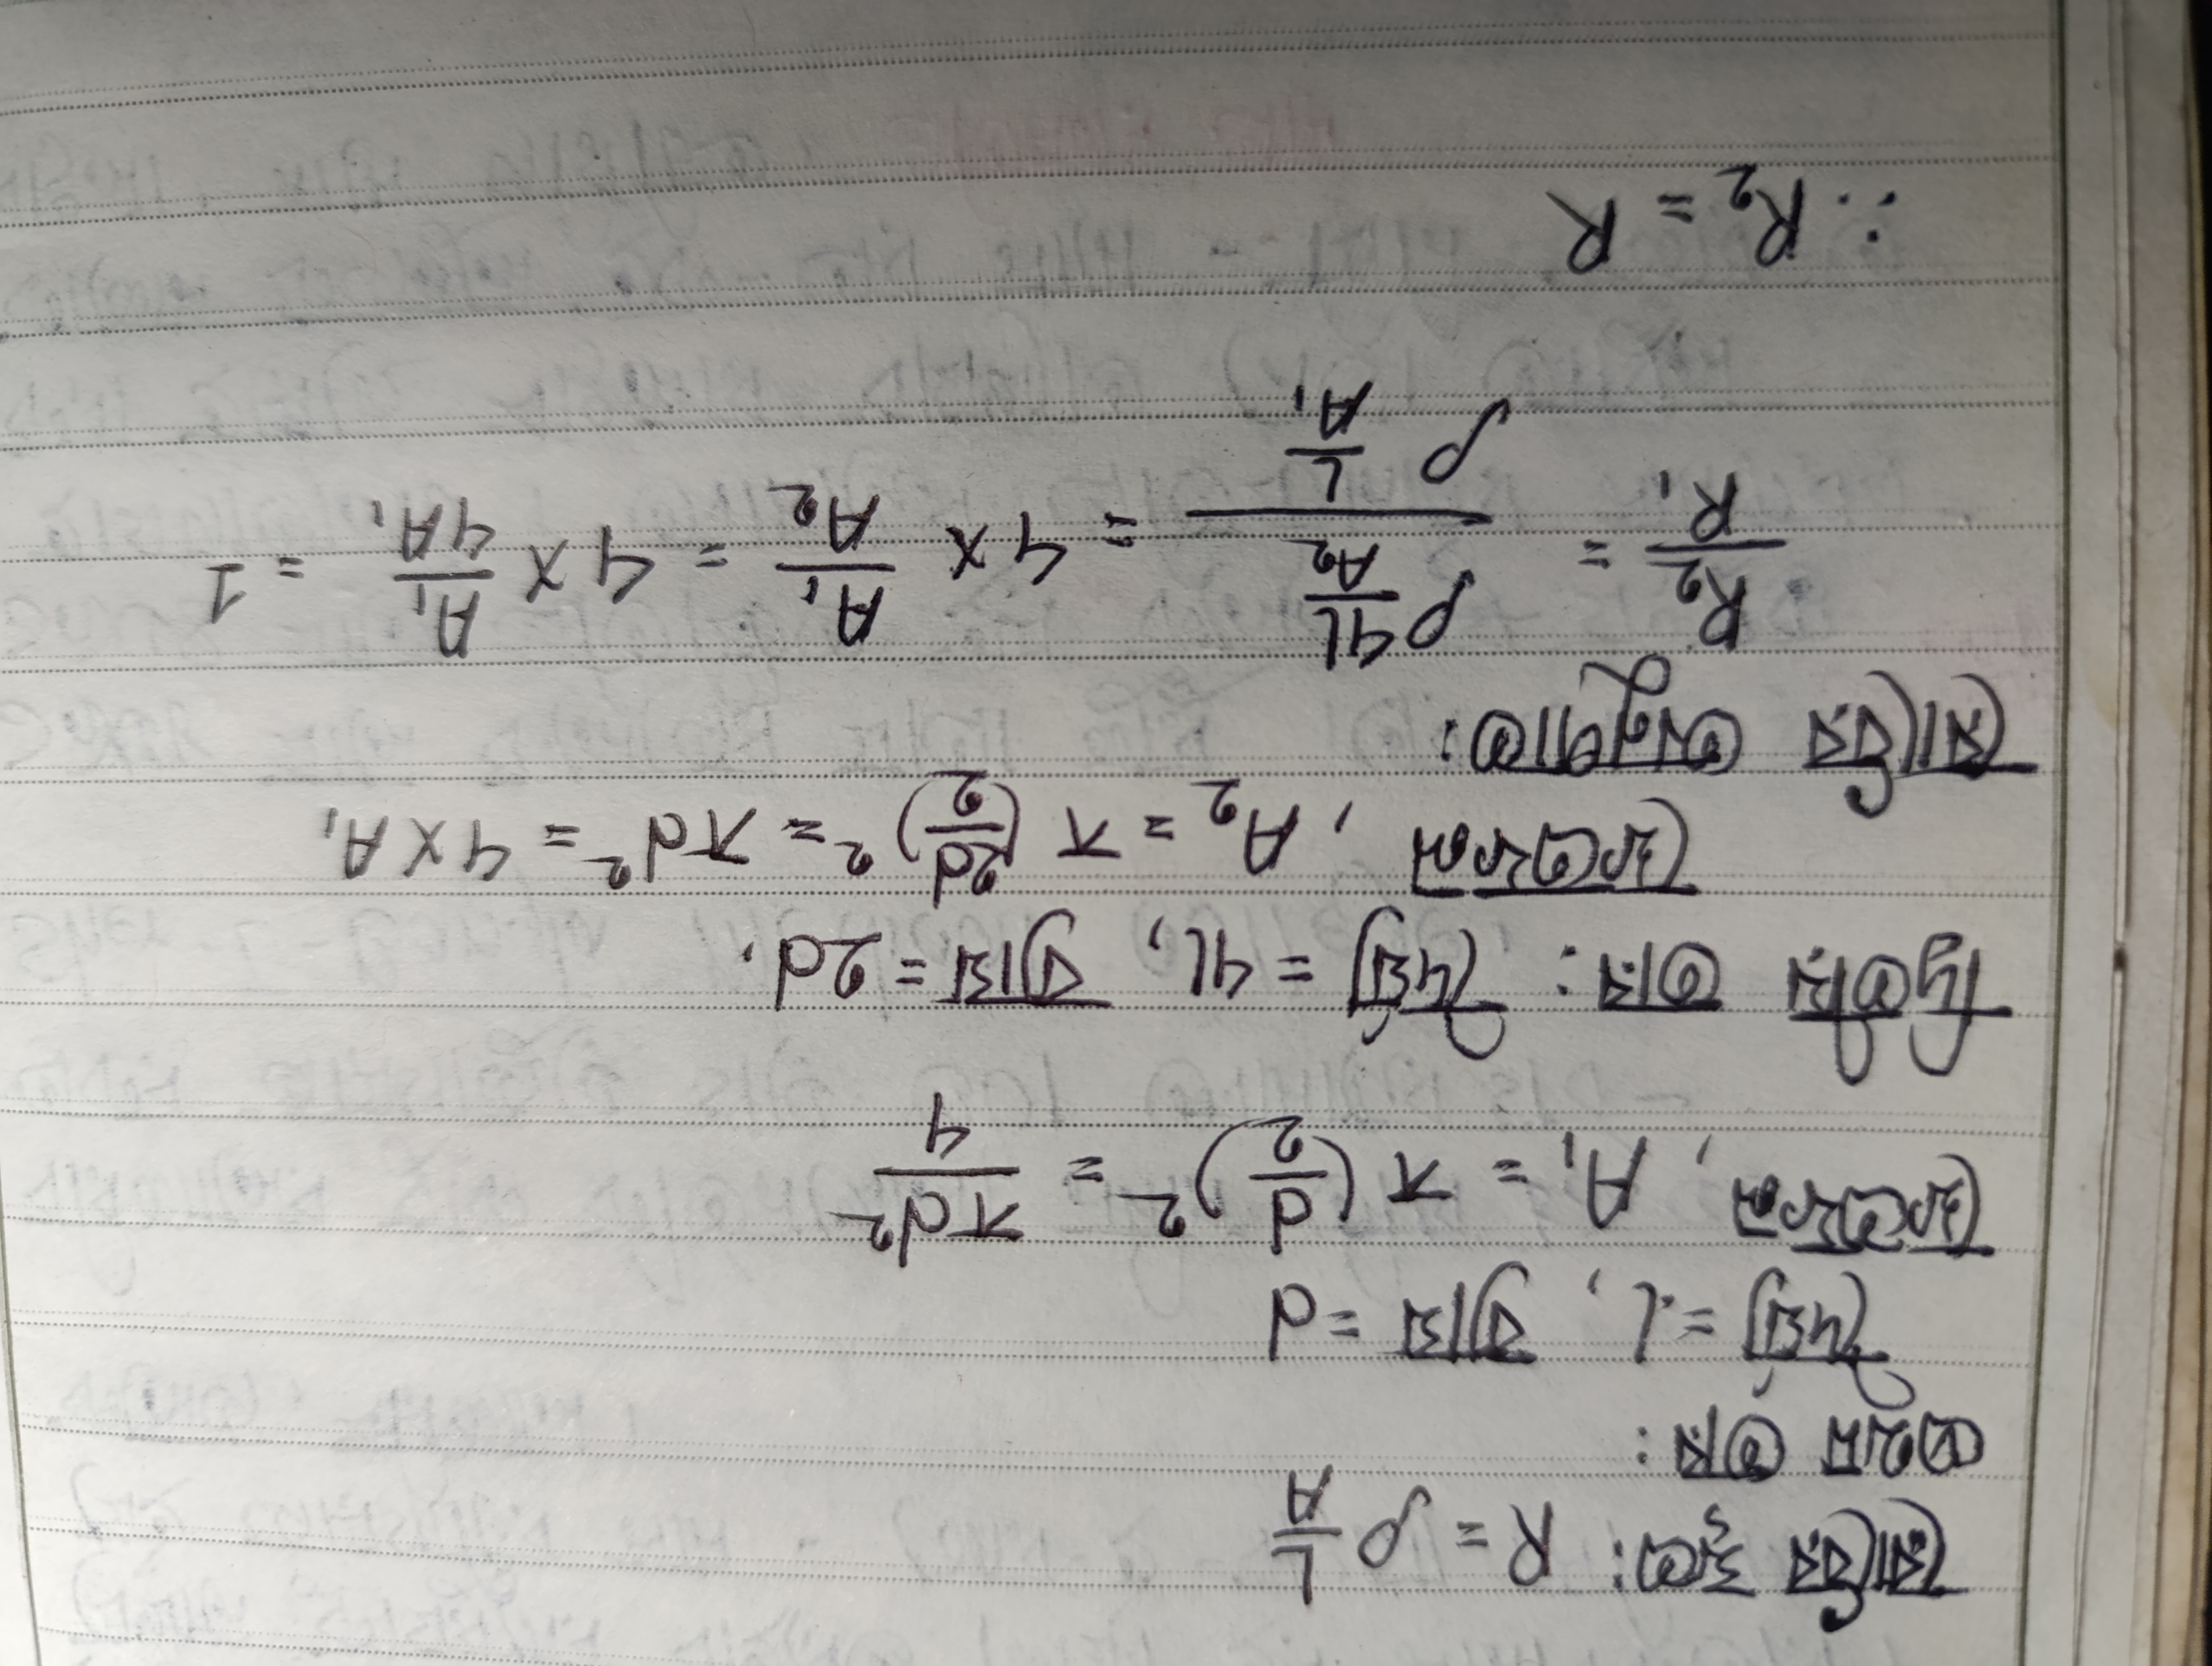 রোধের সূত্র: R = ρ L/A
প্রথম তার:
দৈর্ঘ্য = L, ব্যাস = d
ক্ষেত্রফল, A₁ = π (d/2)² = πd²/4
দ্বিতীয় তার: দৈর্ঘ্য = 4L, ব্যাস = 2d.
ক্ষেত্রফল, A₂ = π (2d/2)² = πd² = 4 × A₁
রোধের অনুপাত:
R₂/R₁ = (ρ 4L/A₂)/(ρ L/A₁) = 4 × A₁/A₂ = 4 × A₁/4A₁ = 1
∴ R₂ = R